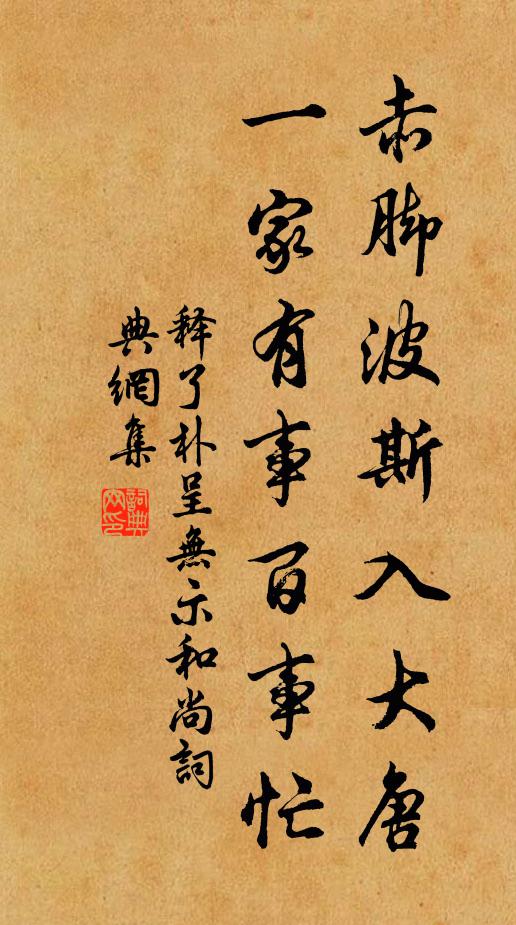 赤脚波斯入大唐
一家有事百事忙
释了朴呈無示和尚詞
典網集
詞典
网印